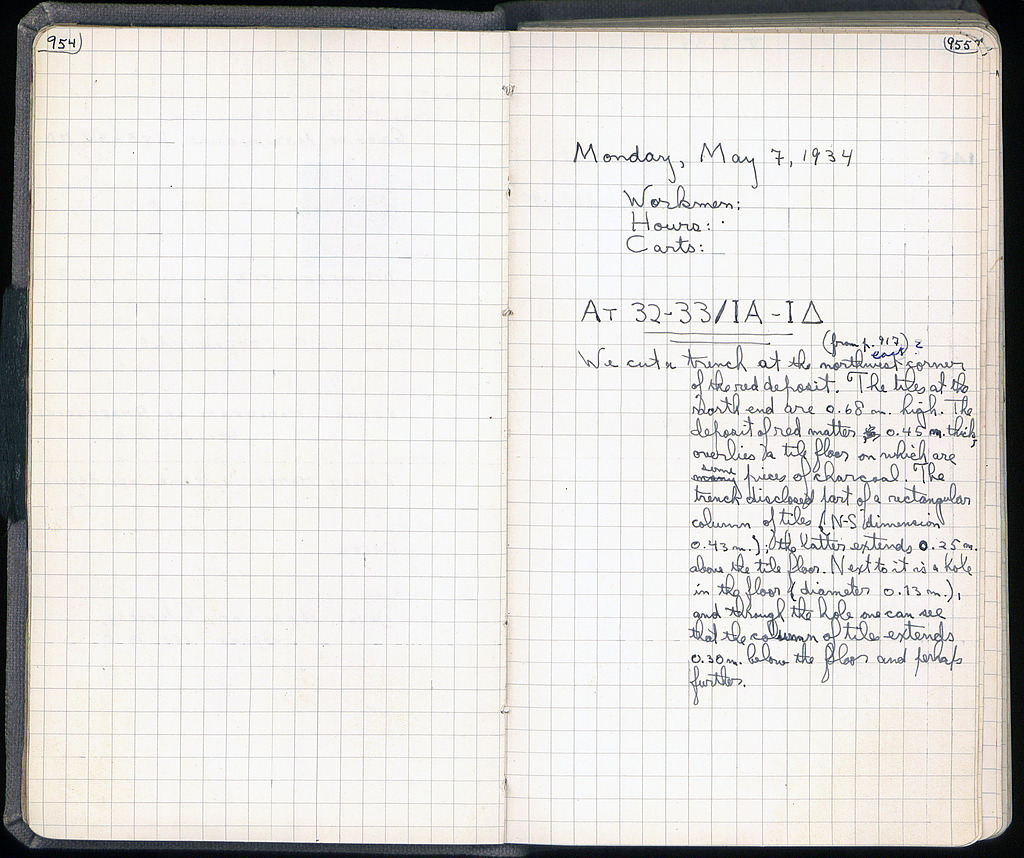 954
955
Monday, May 7, 1934
Workmen:
Hours:
Carts:
AT 32-33/ΙΑ-ΙΔ
(from p. 917) ?
east
We cut a trench at the northwest corner
of the red deposit. The tiles at the
north end are 0.68 m. high. The
deposit of red matter 0.45 m. thick,
overlies a tile floor on which are
some
many pieces of charcoal. The
trench disclosed part of a rectangular
column of tiles (N-S dimension
0.43 m.); the latter extends 0.25 m.
above the tile floor. Next to it is a hole
in the floor (diameter 0.13 m.),
and through the hole one can see
that the column of tiles extends
0.30 m. below the floor and perhaps
further.